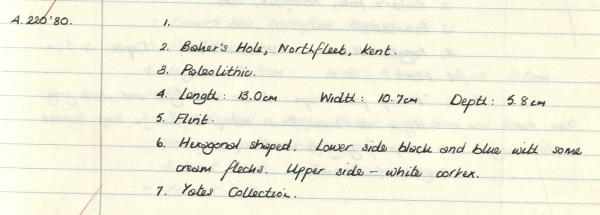 A. 220'80. 1.
2. Baker's Hole, Northfleet, Kent.
3. Paleolithic.
4. Length: 13.0cm Width: 10.7cm Depth: 5.8cm
5. Flint.
6. Hexagonal shaped. Lower side black and blue with some
cream flecks. Upper side - white cortex.
7. Yates Collection.